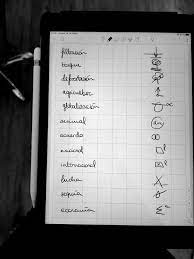 filtración
bosque
deforestación
agricultor
globalización
animal
acuerdo
nacional
internacional
lucha
sequía
economía